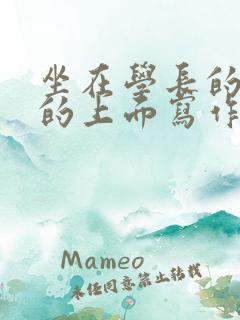 坐在學長的
的上面寫作
Mameo
未任同意禁止转载